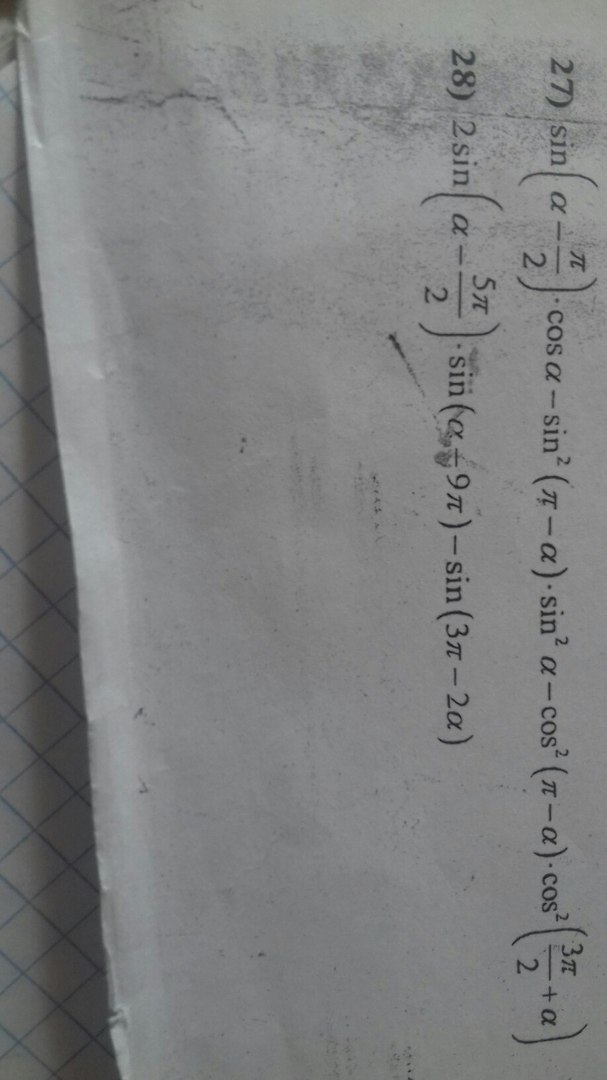 27) sin(α − π/2)·cos α − sin²(π − α)·sin² α − cos²(π − α)·cos²(3π/2 + α)
28) 2 sin(α − 5π/2)·sin(α − 9π) − sin(3π − 2α)